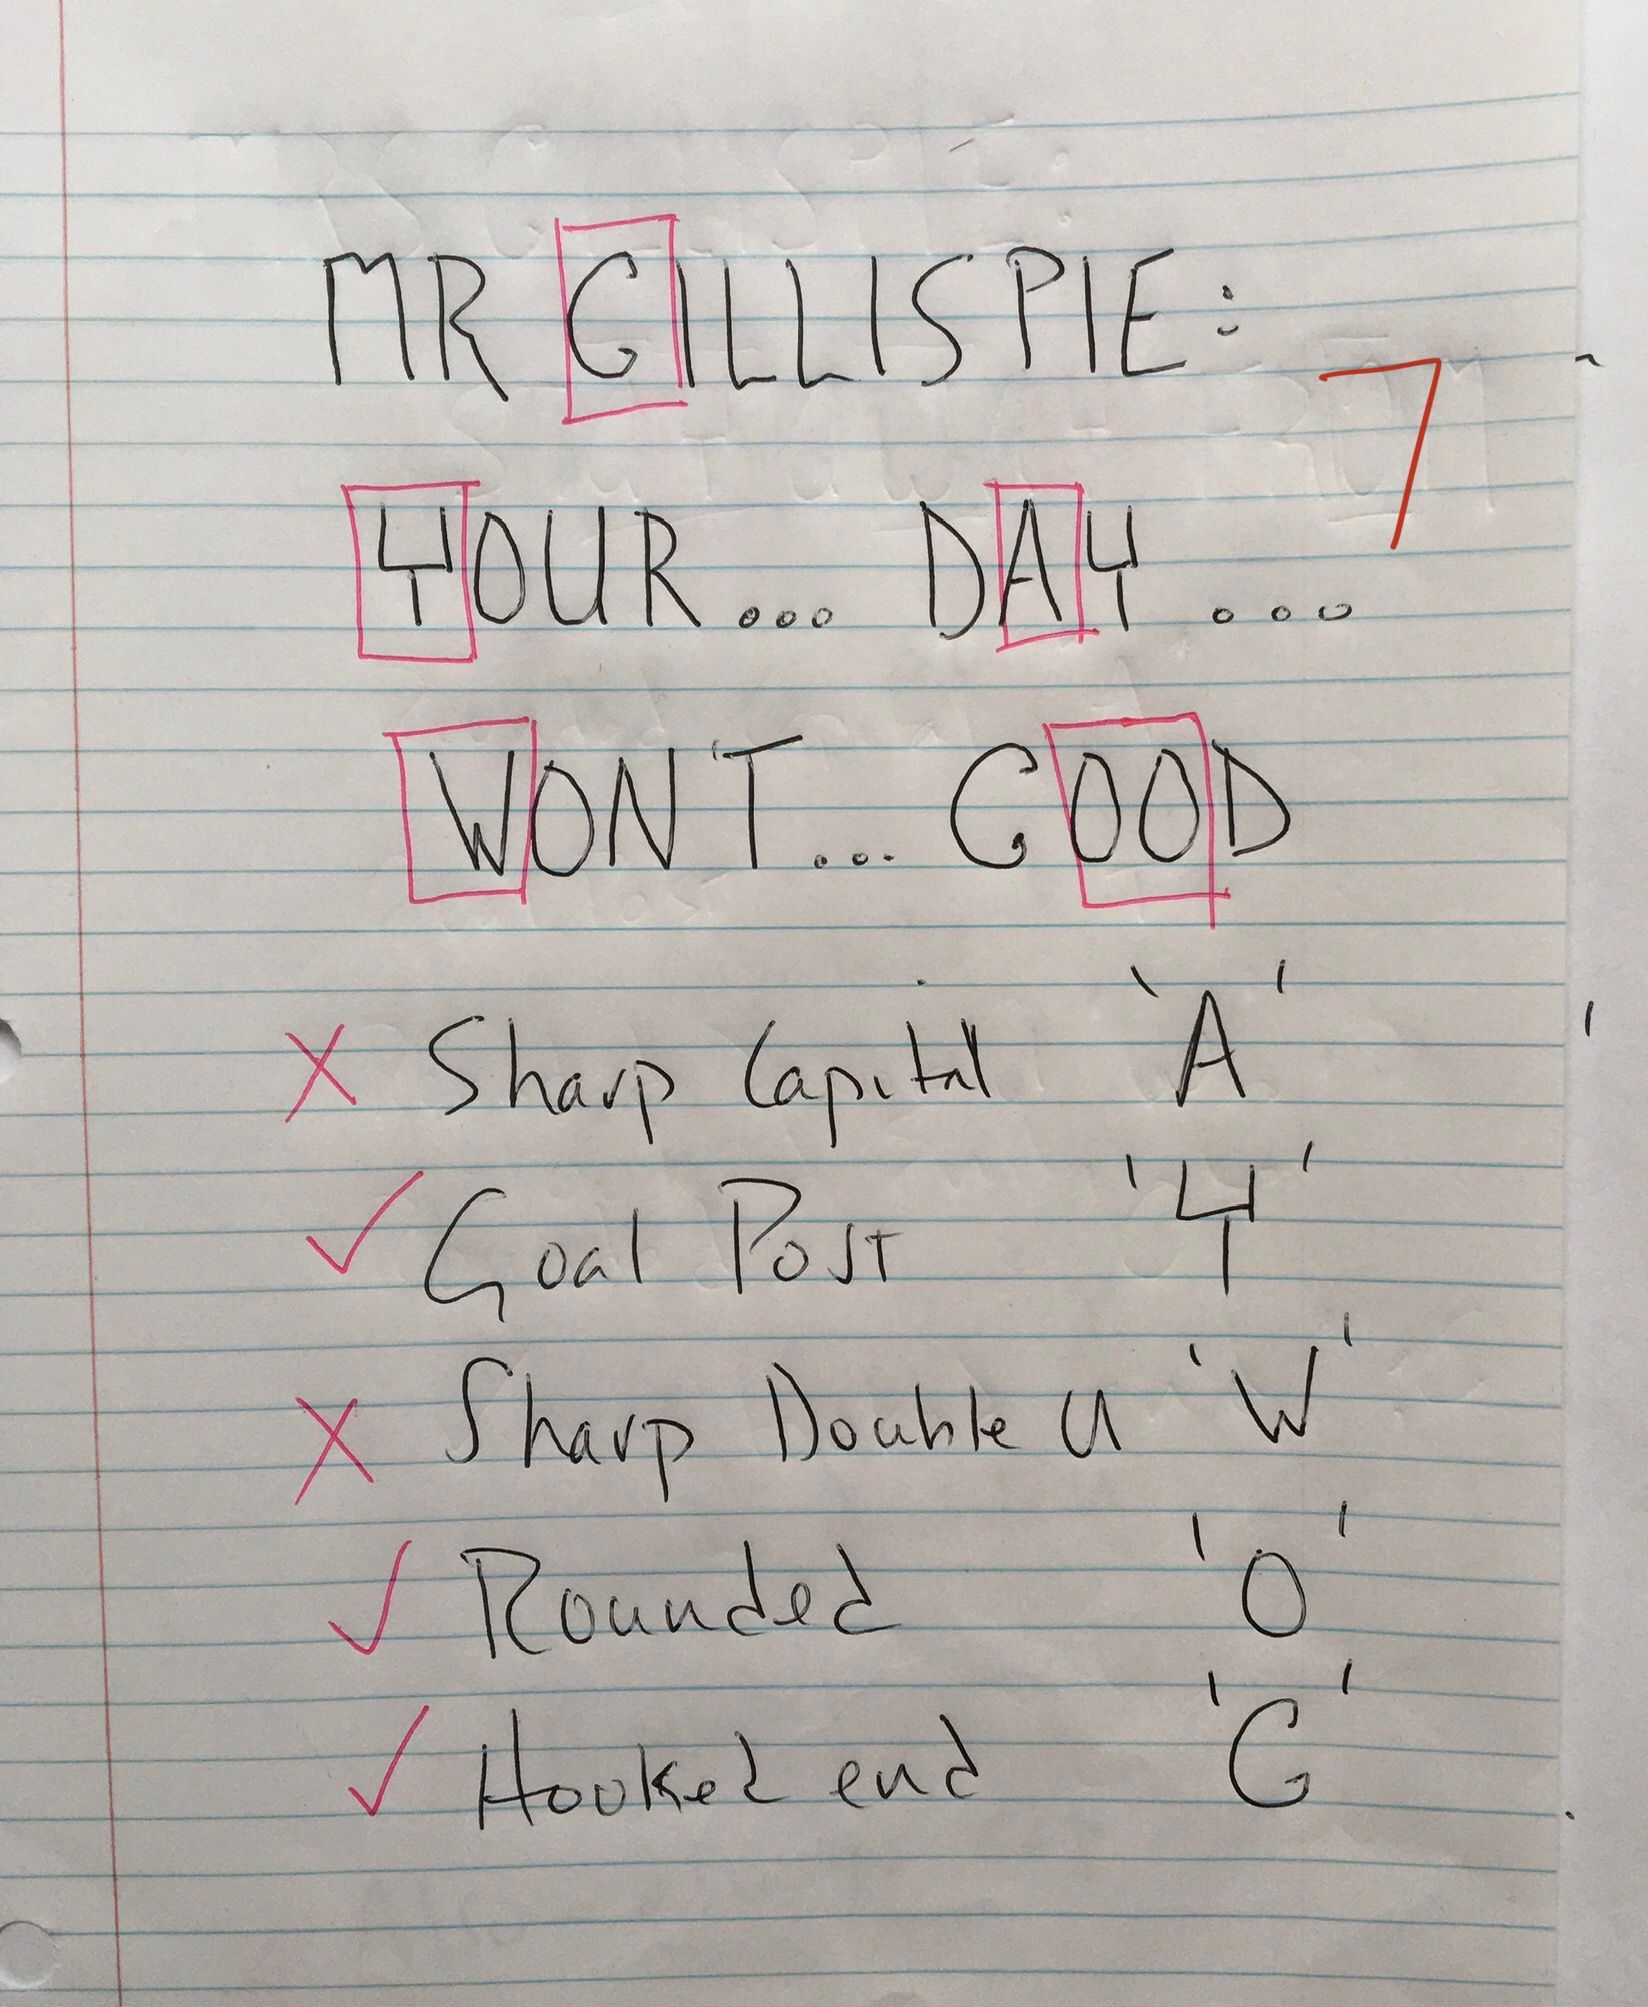 MR GILLISPIE:
7
YOUR... DAY...
WON'T... GOOD
X Sharp Capital 'A'
✓ Goal Post 'Y'
X Sharp Double U 'W'
✓ Rounded 'O'
✓ Hooked end 'G'